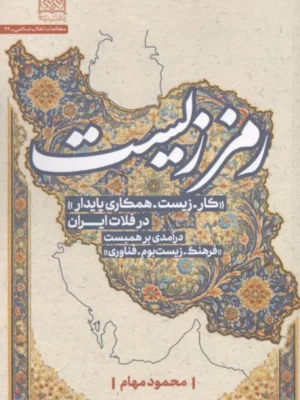 مطالعات انقلاب اسلامی-۴۶
رمز زیست
«کار-زیست-همکاری پایدار»
در فلات ایران
درآمدی بر همبست
«فرهنگ-زیست‌بوم-فناوری»
محمود مهام